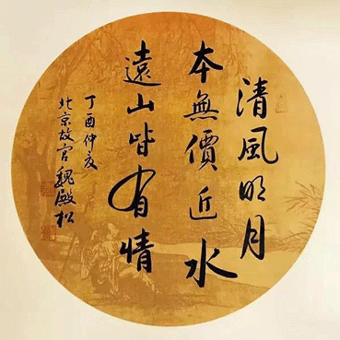 清風明月
本無價近水
遠山皆有情
丁酉仲夏
北京故宮魏殿松